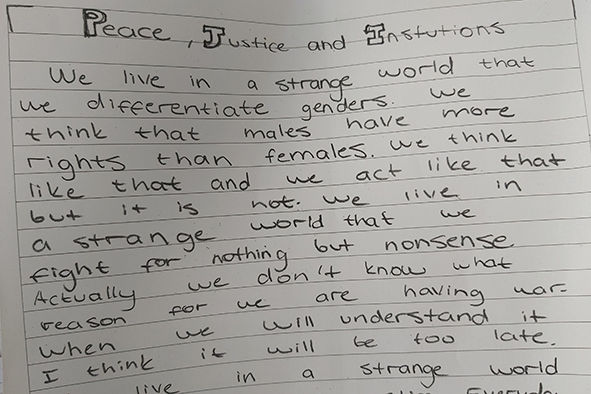 Peace, Justice and Instutions
We live in a strange world that
we differentiate genders. We
think that males have more
rights than females. We think
like that and we act like that
but it is not. We live in
a strange world that we
fight for nothing but nonsense
Actually we don't know what
reason for we are having war.
When we will understand it
I think it will be too late.
live in a strange world
Everyda